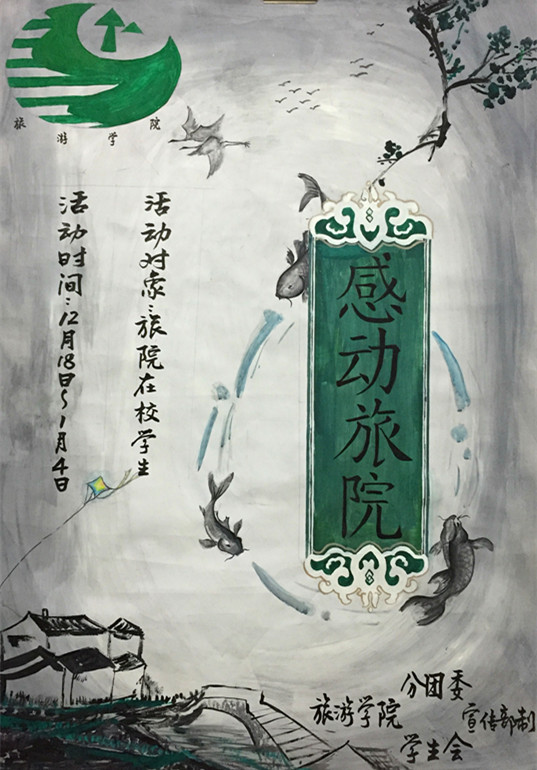 旅游学院
感动旅院
活动对象:旅院在校学生
活动时间:12月18日~1月4日
旅游学院
分团委
学生会
宣传部制